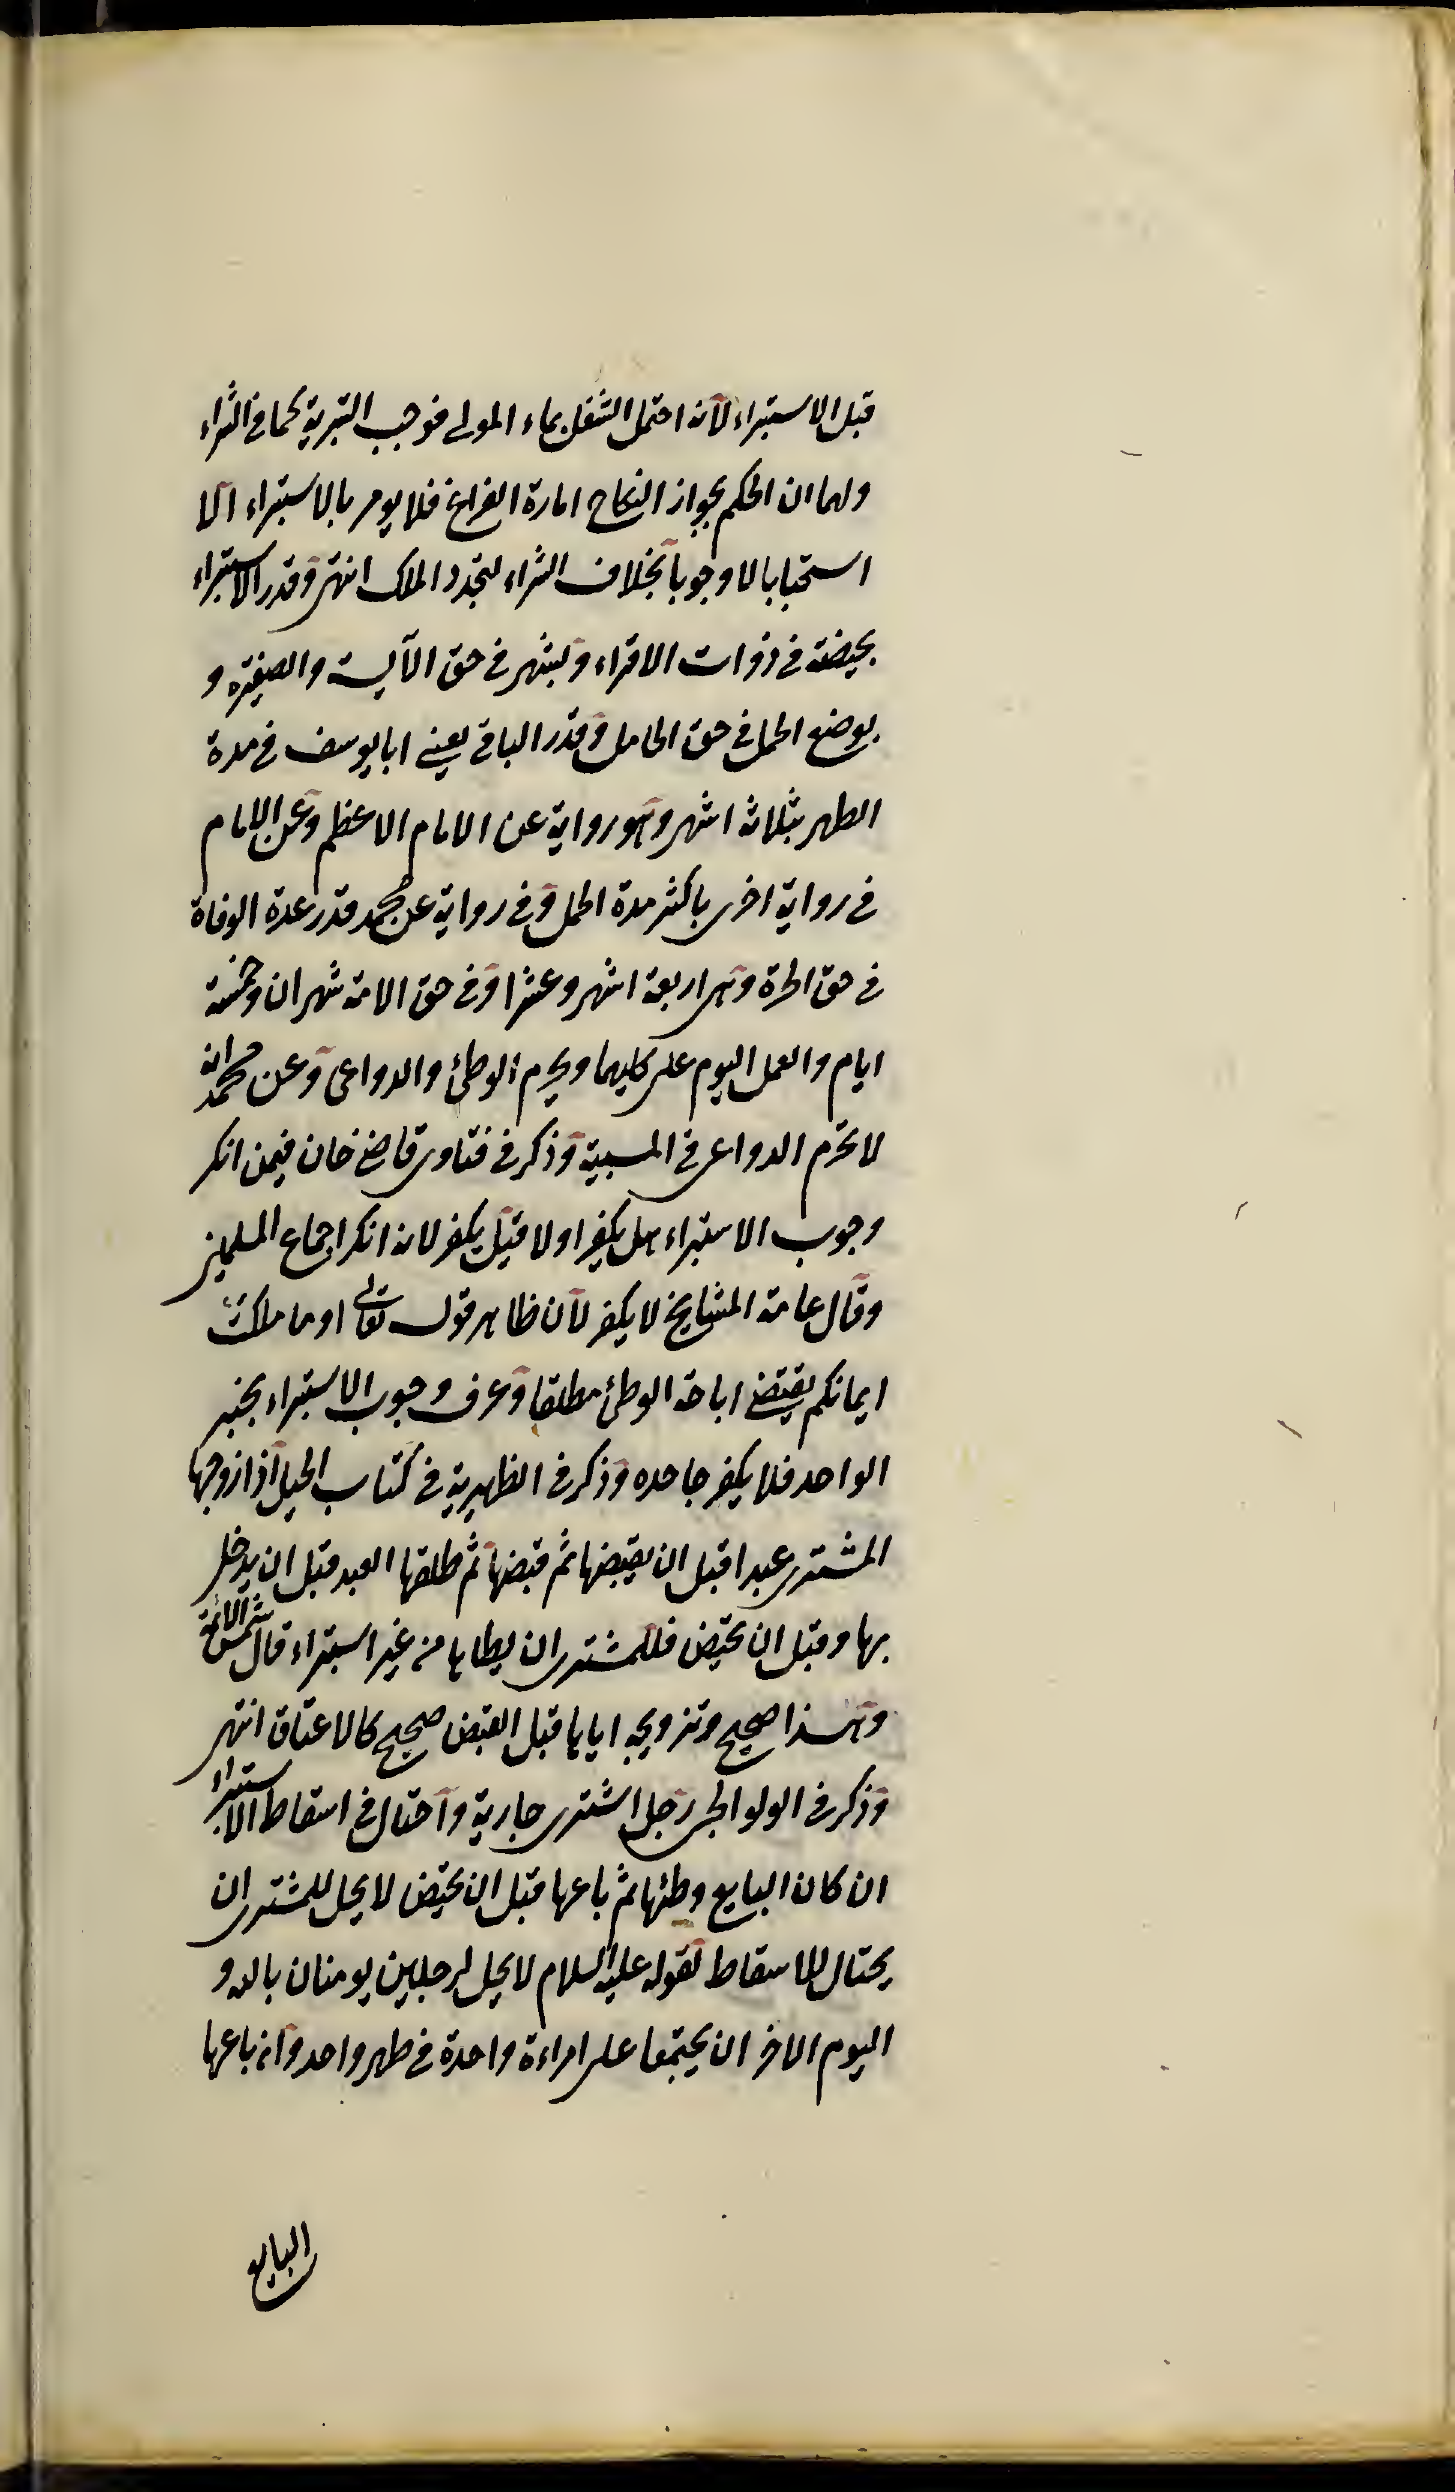 قبل الاستبراء لانه احتمل الشغل بماء المولى فوجب التبرية كما فى الشراء
ولهما ان الحكم بجواز النكاح امارة الفراغ فلا يومر بالاستبراء الا
استحبابا لا وجوبا بخلاف الشراء لتجدد الملك انتهى وقدر الاستبراء
بحيضة فى ذوات الاقراء وبشهر فى حق الآيسة والصغيرة و
بوضع الحمل فى حق الحامل وقدر الباقى يعنى ابا يوسف فى مدة
الطهر بثلاثة اشهر وهو رواية عن الامام الاعظم وعن الامام
فى رواية اخرى باكثر مدة الحمل وفى رواية عن محمد قدر عدة الوفاة
فى حق الحرة وهى اربعة اشهر وعشرا وفى حق الامة شهران وخمسة
ايام والعمل اليوم على كليهما ويحرم الوطئ والدواعى وعن محمد انه
لا تحرم الدواعى فى المسبية وذكر فى فتاوى قاضى خان فيمن انكر
وجوب الاستبراء هل يكفر او لا قيل يكفر لانه انكر اجماع المسلمين
وقال عامة المشايخ لا يكفر لان ظاهر قوله تعالى او ما ملكت
ايمانكم يقتضى اباحة الوطئ مطلقا وعرف وجوب الاستبراء بخبر
الواحد فلا يكفر جاحده وذكر فى الظهيرية فى كتاب الحيل اذا زوجها
المشترى عبدا قبل ان يقبضها ثم قبضها ثم طلقها العبد قبل ان يدخل
بها وقبل ان تحيض فللمشترى ان يطاها من غير استبراء قال شمس الائمة
وهذا صحيح وتزويجه اياها قبل القبض صحيح كالاعتاق انتهى
وذكر فى الولوالجى رجل اشترى جارية واحتال فى اسقاط الاستبراء
ان كان البايع وطئها ثم باعها قبل ان تحيض لا يحل للمشترى ان
يحتال للاسقاط لقوله عليه السلام لا يحل لرجلين يومنان بالله و
اليوم الاخر ان يجتمعا على امراءة واحدة فى طهر واحد وان باعها
البايع